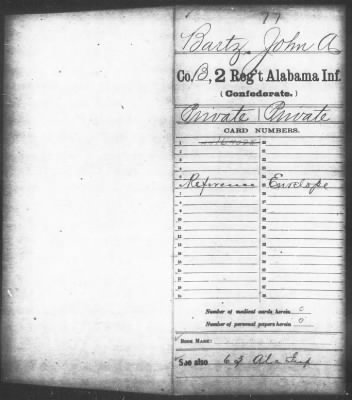 Bartz, John A
Co. B, 2 Reg't Alabama Inf.
(Confederate.)
Private | Private
CARD NUMBERS.
1
2
Reference Envelope
Number of medical cards herein 0
Number of personal papers herein 0
BOOK MARK:
See also 62 Ala Inf